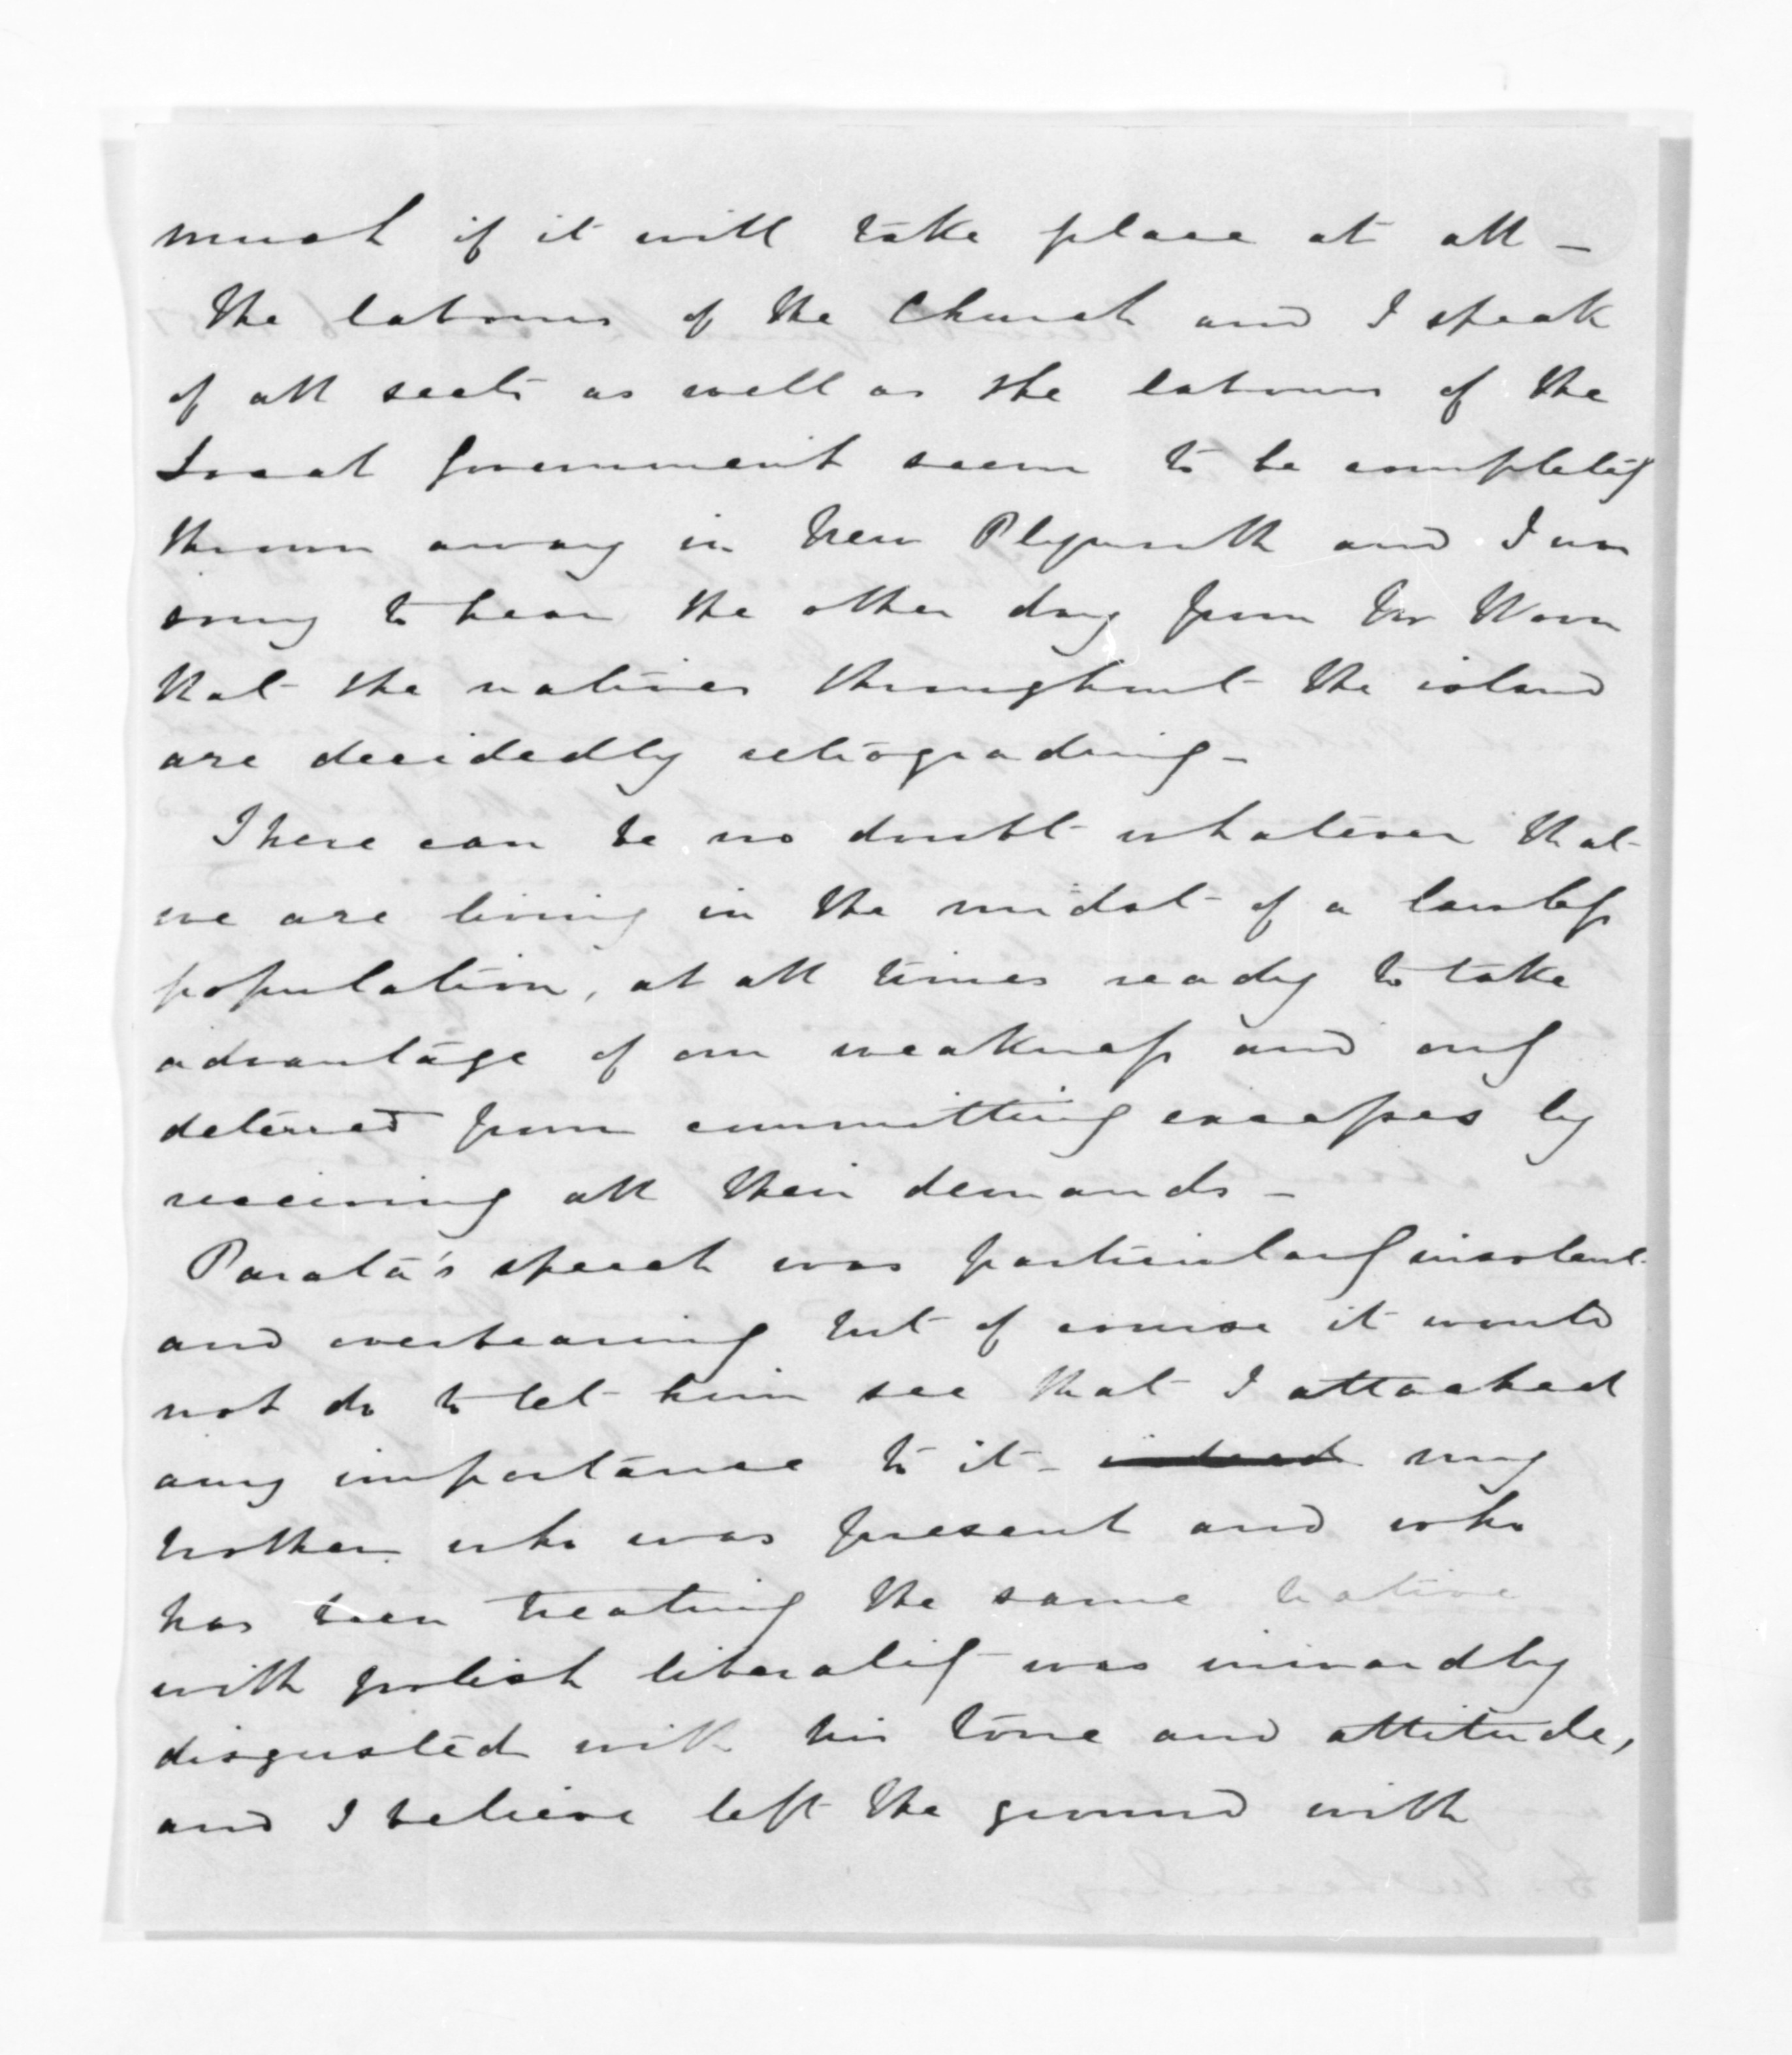 much if it will take place at all _
The labours of the Church and I speak
of all sects as well as the labours of the
Local Government seem to be completely
thrown away in New Plymouth and I was
sorry to hear the other day from Mr
that the natives throughout the island
are decidedly retrograding _
There can be no doubt whatever that
we are living in the midst of a lawless
population, at all times ready to take
advantage of our weakness and only
deterred from committing excesses by
receiving all their demands _
Parata's speech was particularly insolent
and overbearing but of course it would
not do to let him see that I attached
any importance to it _ indeed my
brother who was present and who
has been treating the same native
with foolish liberality was inwardly
disgusted with his tone and attitude,
and I believe left the ground with